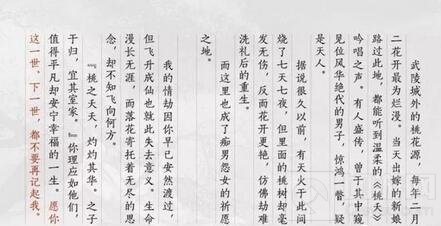 武陵城外的桃花源，每年二月
二花开最为烂漫。当天出嫁的新娘
路过此地，都能听到温柔的《桃夭》
吟唱之声。有人盛传，曾于其中窥
见位风华绝代的男子，惊鸿一瞥，疑
是天人。
据说很久以前，有天火于此间
烧了七天七夜，但里面的桃树却毫
发无伤，反而花开更艳，仿佛劫难
洗礼后的重生。
而这里也成了痴男怨女的祈愿
之地。
我的情劫因你早已安然渡过，
但飞升成仙也就此失去意义。生命
漫长无涯，而落花寄托着无尽的思
念，却不知飞向何方。
『桃之夭夭，灼灼其华。之子
于归，宜其室家。』你理应如他们，
值得平凡却安宁幸福的一生。愿你
这一世、下一世，都不要再记起我。